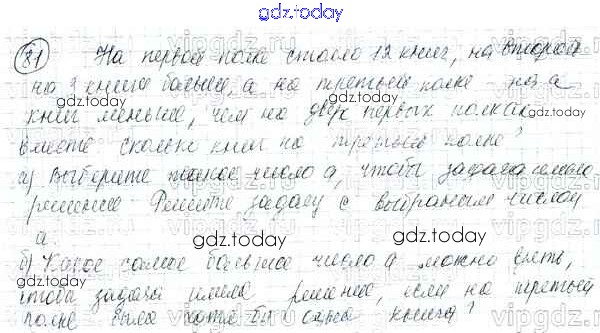 gdz.today
81 На первой полке стояло 12 книг, на второй
на 3 книги больше, а на третьей полке на а
gdz.today
книг меньше, чем на двух первых полках
вместе сколько книг на третьей полке?
а) Выберите такое число а, чтобы задача имела
решение. Решите задачу с выбраным числом
а.
gdz.today
gdz.today
б) Какое самое большое число а можно взять,
чтобы задача имела решение, если на третьей
полке была хотя бы одна книга?
gdz.today
gdz.today